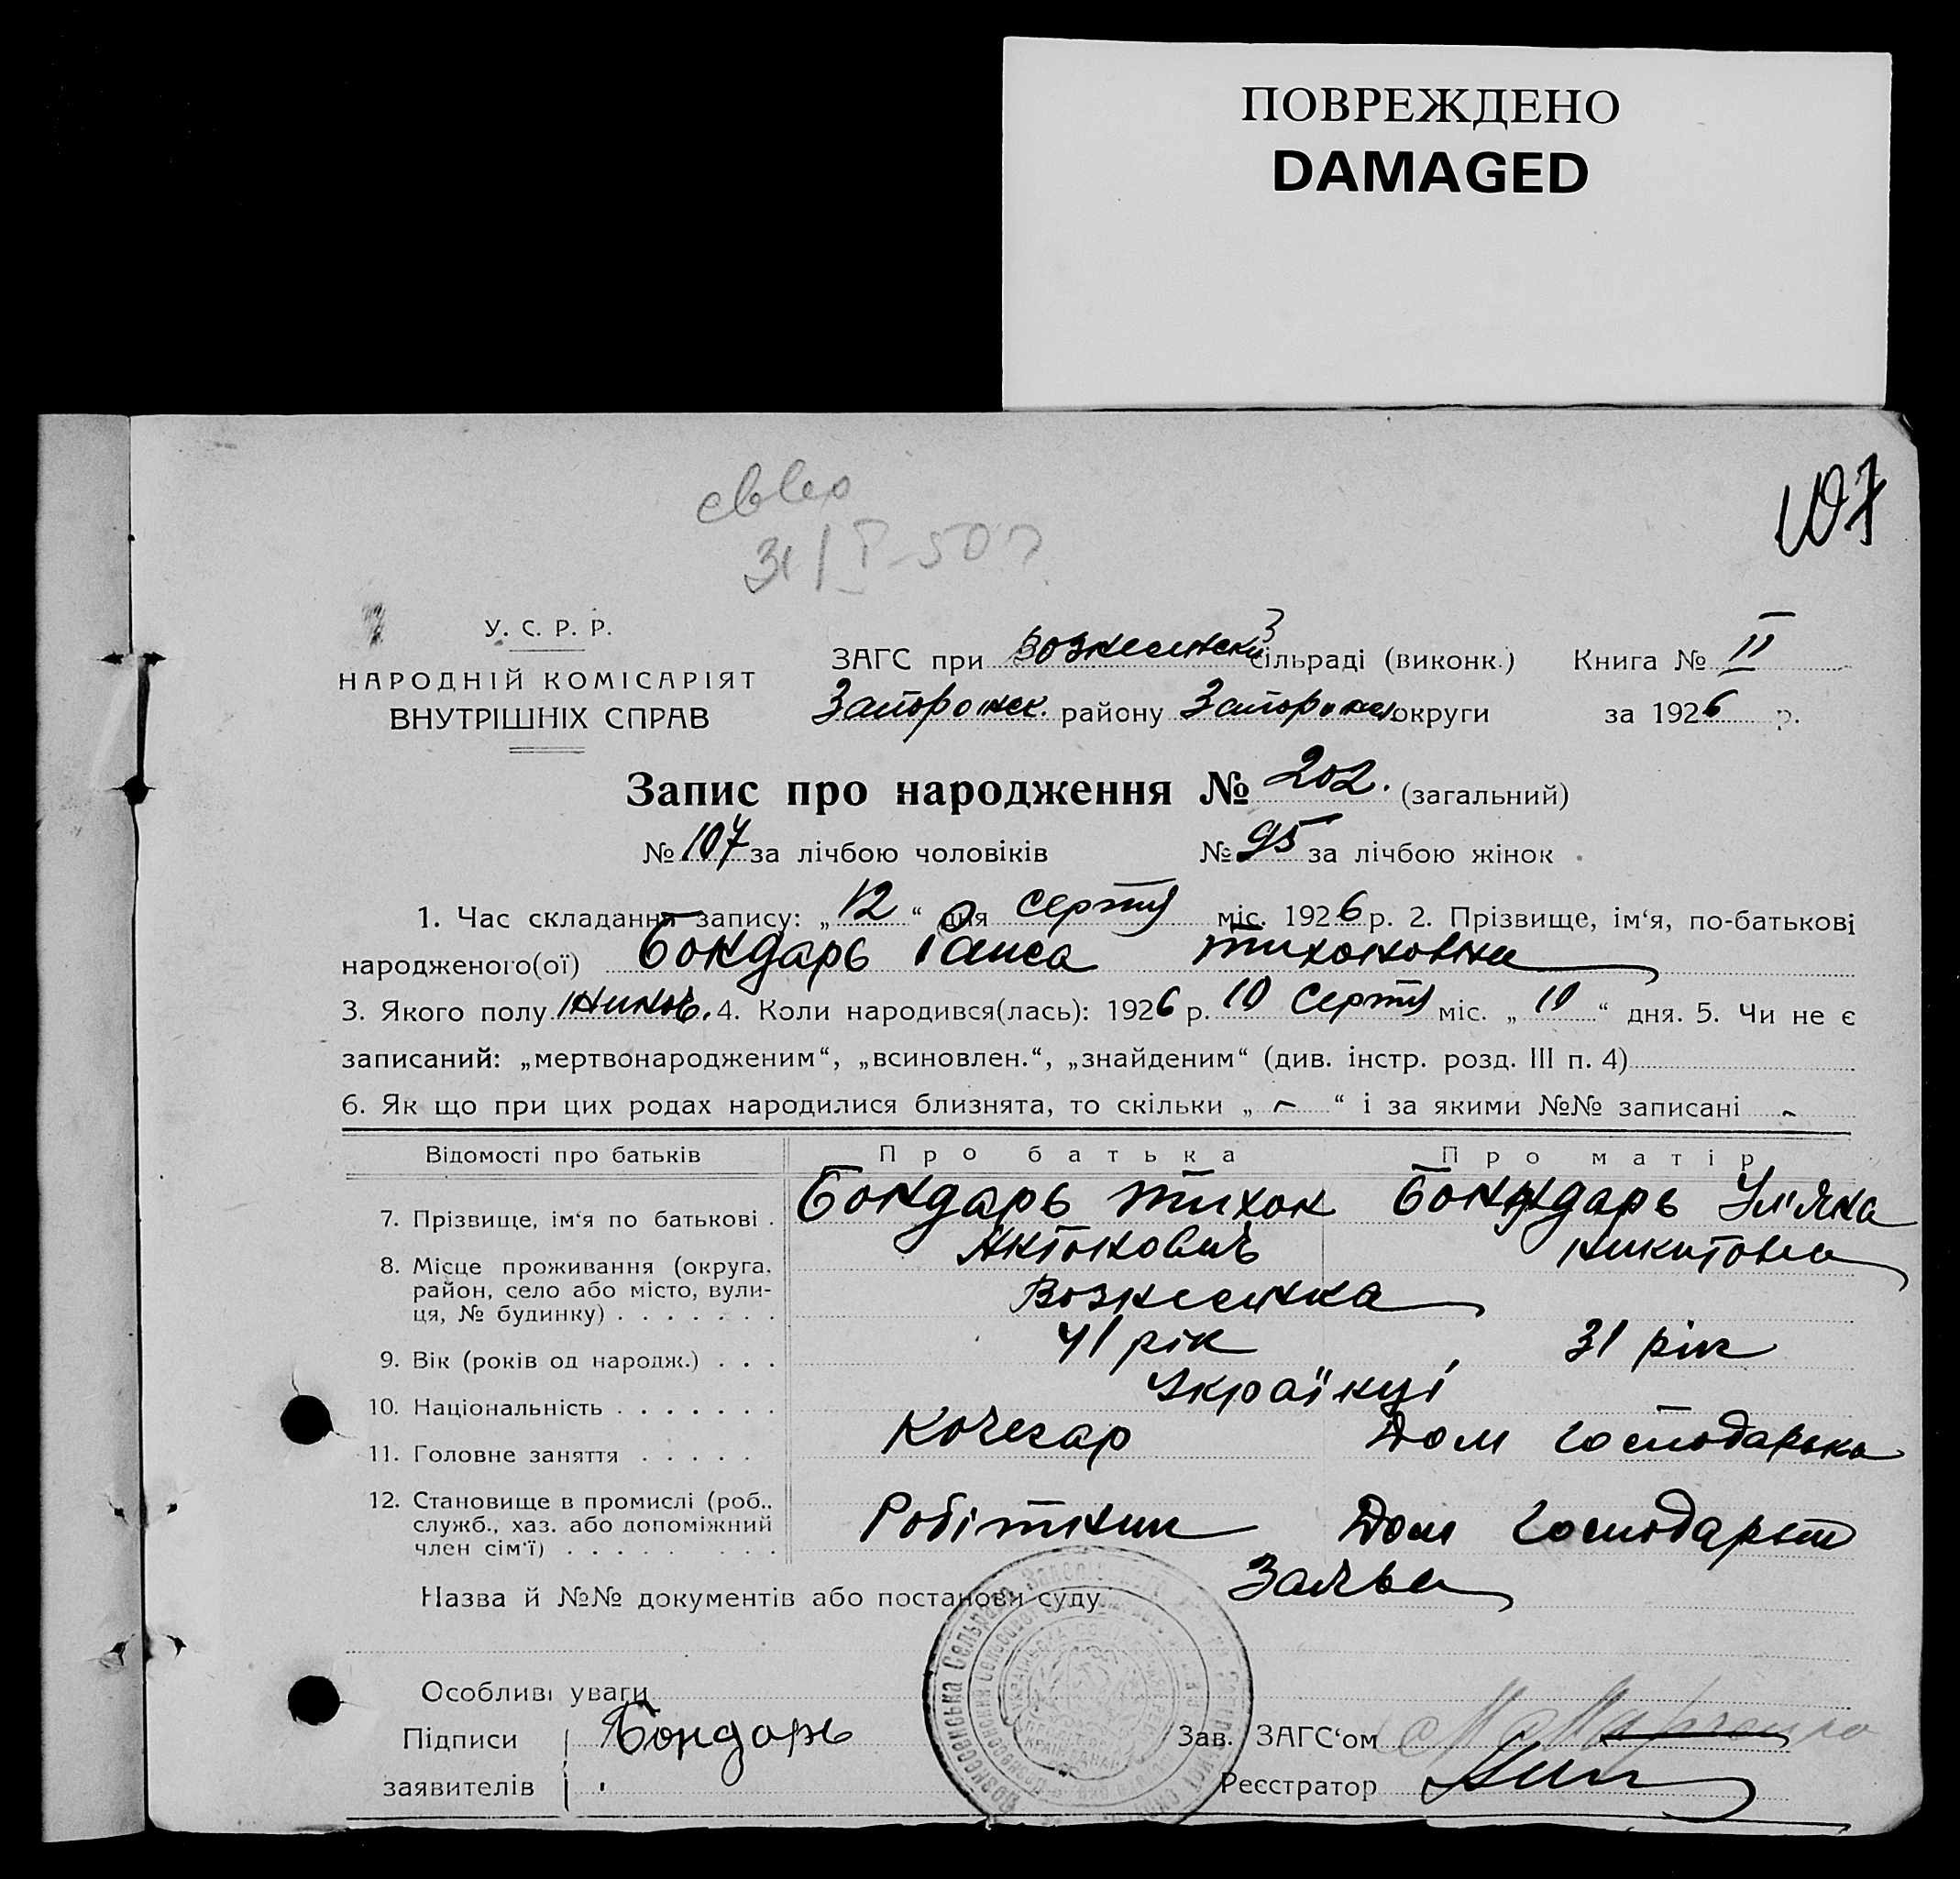 ПОВРЕЖДЕНО
DAMAGED
107
31/I-50
У. С. Р. Р.
НАРОДНІЙ КОМІСАРІЯТ
ВНУТРІШНІХ СПРАВ
ЗАГС при Вознесенскій сільраді (виконк.) Книга № II
Запорожск. району Запорожск. округи за 1926 р.
Запис про народження № 202. (загальний)
№ 107 за лічбою чоловіків № 95 за лічбою жінок
1. Час складання запису: „12“ дня серпня міс. 1926 р. 2. Прізвище, ім‘я, по-батькові
народженого(ої) Бондарь Раиса Тихоновна
3. Якого полу жиноч. 4. Коли народився(лась): 1926 р. 10 серпня міс. „10“ дня. 5. Чи не є
записаний: „мертвонародженим“, „всиновлен.“, „знайденим“ (див. інстр. розд. III п. 4)
6. Як що при цих родах народилися близнята, то скільки „ - “ і за якими №№ записані -
Відомості про батьків Про батька Про матір
7. Прізвище, ім‘я по батькові . Бондарь Тихон Антонович Бондарь Ул'яна Никитовна
8. Місце проживання (округа, район, село або місто, вулиця, № будинку) . . . . . . . Вознесенка
9. Вік (років од народж.) . . . 41 рік 31 рік
10. Національність . . . . . . . Українці
11. Головне заняття . . . . . Кочегар Дом господарька
12. Становище в промислі (роб., служб., хаз. або допоміжний член сім‘ї) . . . . . . . . Робітник Дом господарьт
Назва й №№ документів або постанови суду Заява
Особливі уваги
Підписи Бондарь Зав. ЗАГС‘ом
заявителів Реєстратор